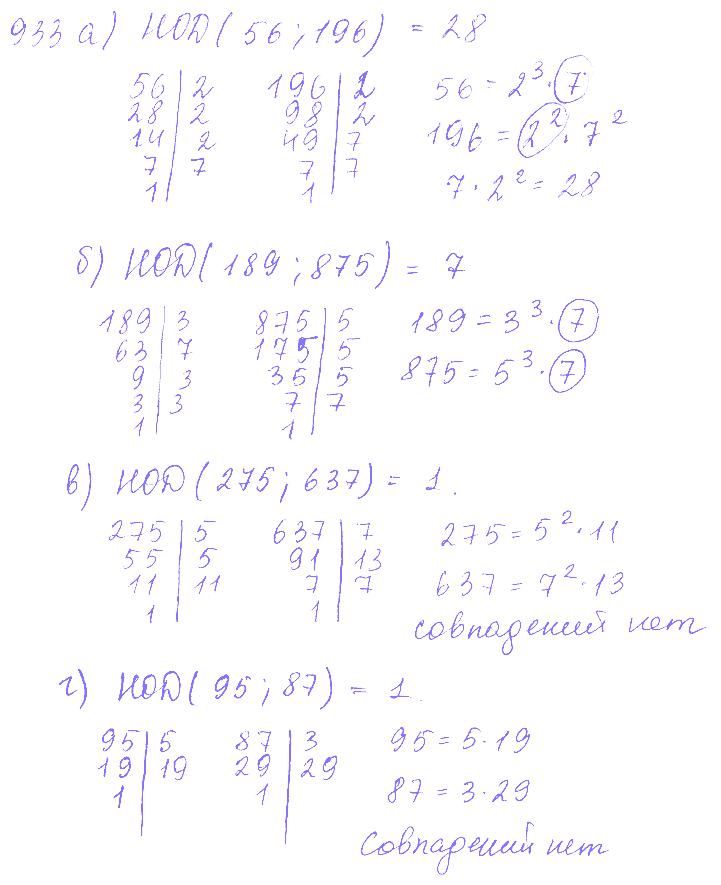 933 а) НОД(56;196) = 28
56 | 2 196 | 2 56 = 2³·7
28 | 2 98 | 2
14 | 2 49 | 7 196 = 2²·7²
7 | 7 7 | 7
1 | 1 | 7·2² = 28
б) НОД(189;875) = 7
189 | 3 875 | 5 189 = 3³·7
63 | 7 175 | 5
9 | 3 35 | 5 875 = 5³·7
3 | 3 7 | 7
1 | 1 |
в) НОД(275;637) = 1.
275 | 5 637 | 7 275 = 5²·11
55 | 5 91 | 13
11 | 11 7 | 7 637 = 7²·13
1 | 1 |
совпадений нет
г) НОД(95;87) = 1.
95 | 5 87 | 3 95 = 5·19
19 | 19 29 | 29
1 | 1 | 87 = 3·29
Совпадений нет